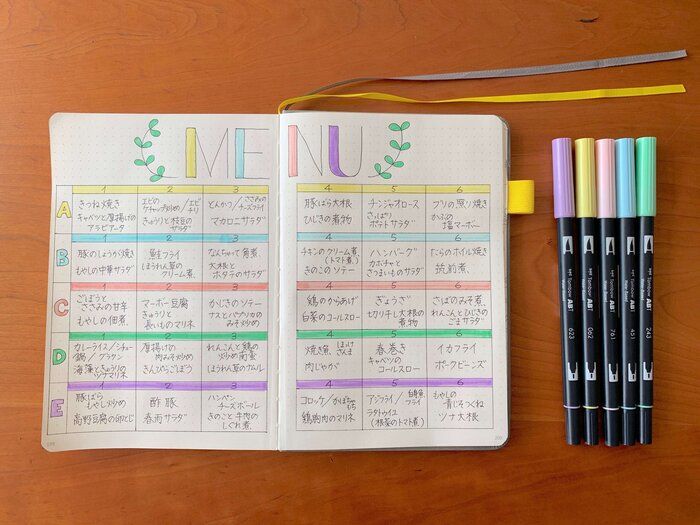 MENU
1 2 3 4 5 6
A
きつね焼き
キャベツと厚揚げの
アラビアータ
エビの
ケチャップ炒め/エビチリ
きゅうりと枝豆の
サラダ
とんかつ/ささみの
チーズフライ
マカロニサラダ
豚ばら大根
ひじきの煮物
チンジャオロース
さっぱり
ポテトサラダ
ブリの照り焼き
かぶの
塩マーボー
1 2 3 4 5 6
B
豚のしょうが焼き
もやしの中華サラダ
鮭フライ
ほうれん草の
クリーム煮
なんちゃって角煮
大根と
ホタテのサラダ
チキンのクリーム煮
(トマト煮)
きのこのソテー
ハンバーグ
カボチャと
さつまいものサラダ
たらのホイル焼き
筑前煮
1 2 3 4 5 6
C
ごぼうと
ささみの甘辛
もやしの佃煮
マーボー豆腐
きゅうりと
長いものマリネ
かじきのソテー
ナスとパプリカの
みそ炒め
鶏のからあげ
白菜のコールスロー
ぎょうざ
切り干し大根の
煮物
さばのみそ煮
れんこんとひじきの
ごまサラダ
1 2 3 4 5 6
D
カレーライス/シチュー
鍋/グラタン
海藻ときゅうりの
ツナマリネ
厚揚げの
肉みそ炒め
きんぴらごぼう
れんこんと鶏の
ほうれん草のナムル
焼き魚 ほっけ
さんま
肉じゃが
春巻き
キャベツの
コールスロー
イカフライ
ポークビーンズ
1 2 3 4 5 6
E
豚ばら
もやし炒め
高野豆腐の卵とじ
酢豚
春雨サラダ
ハンペン
チーズボール
きのこと牛肉の
しぐれ煮
コロッケ/かぼちゃもち
鶏胸肉のマリネ
アジフライ/白身魚
フライ
ラタトゥイユ
(根菜のトマト煮)
もやしの
ツナ大根
Tombow ABT
623
Tombow ABT
062
Tombow ABT
761
Tombow ABT
451
Tombow ABT
243